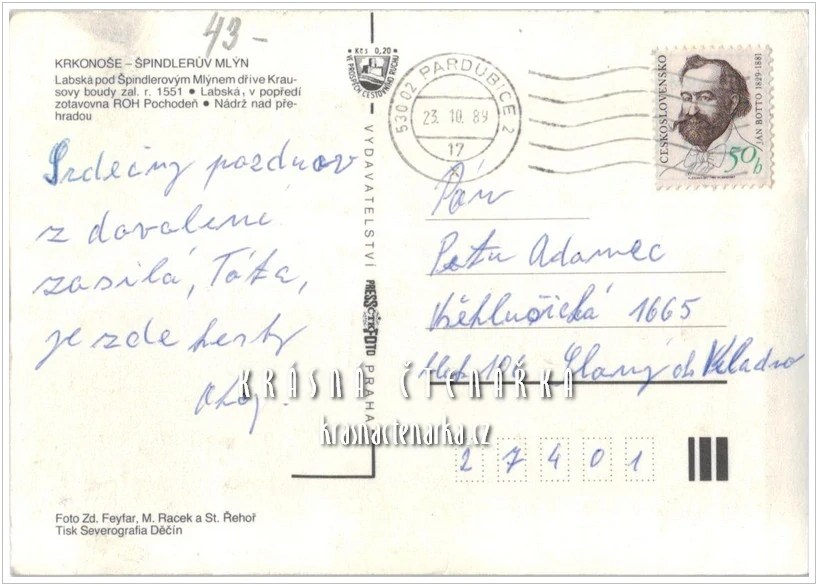 43-
KRKONOŠE – ŠPINDLERŮV MLÝN
Labská pod Špindlerovým Mlýnem dříve Krau-
sovy boudy zal. r. 1551 • Labská, v popředí
zotavovna ROH Pochodeň • Nádrž nad pře-
hradou
Srdečný pozdrav
z dovolené
zasílá, Táta,
je zde hezky
Ahoj.
Foto Zd. Feyfar, M. Racek a St. Řehoř
Tisk Severografia Děčín
Kčs 0,20
VE PROSPĚCH CESTOVNÍHO RUCHU
VYDAVATELSTVÍ PRESSFOTO PRAHA
ČTK
53002 PARDUBICE 2
23.10.89
17
ČESKOSLOVENSKO
JÁN BOTTO 1829-1881
50h
Pán
Petr Adamec
1665
Slaný ok Kladno
27401
KRÁSNÁ ČTENÁŘKA
krasnactenarka.cz